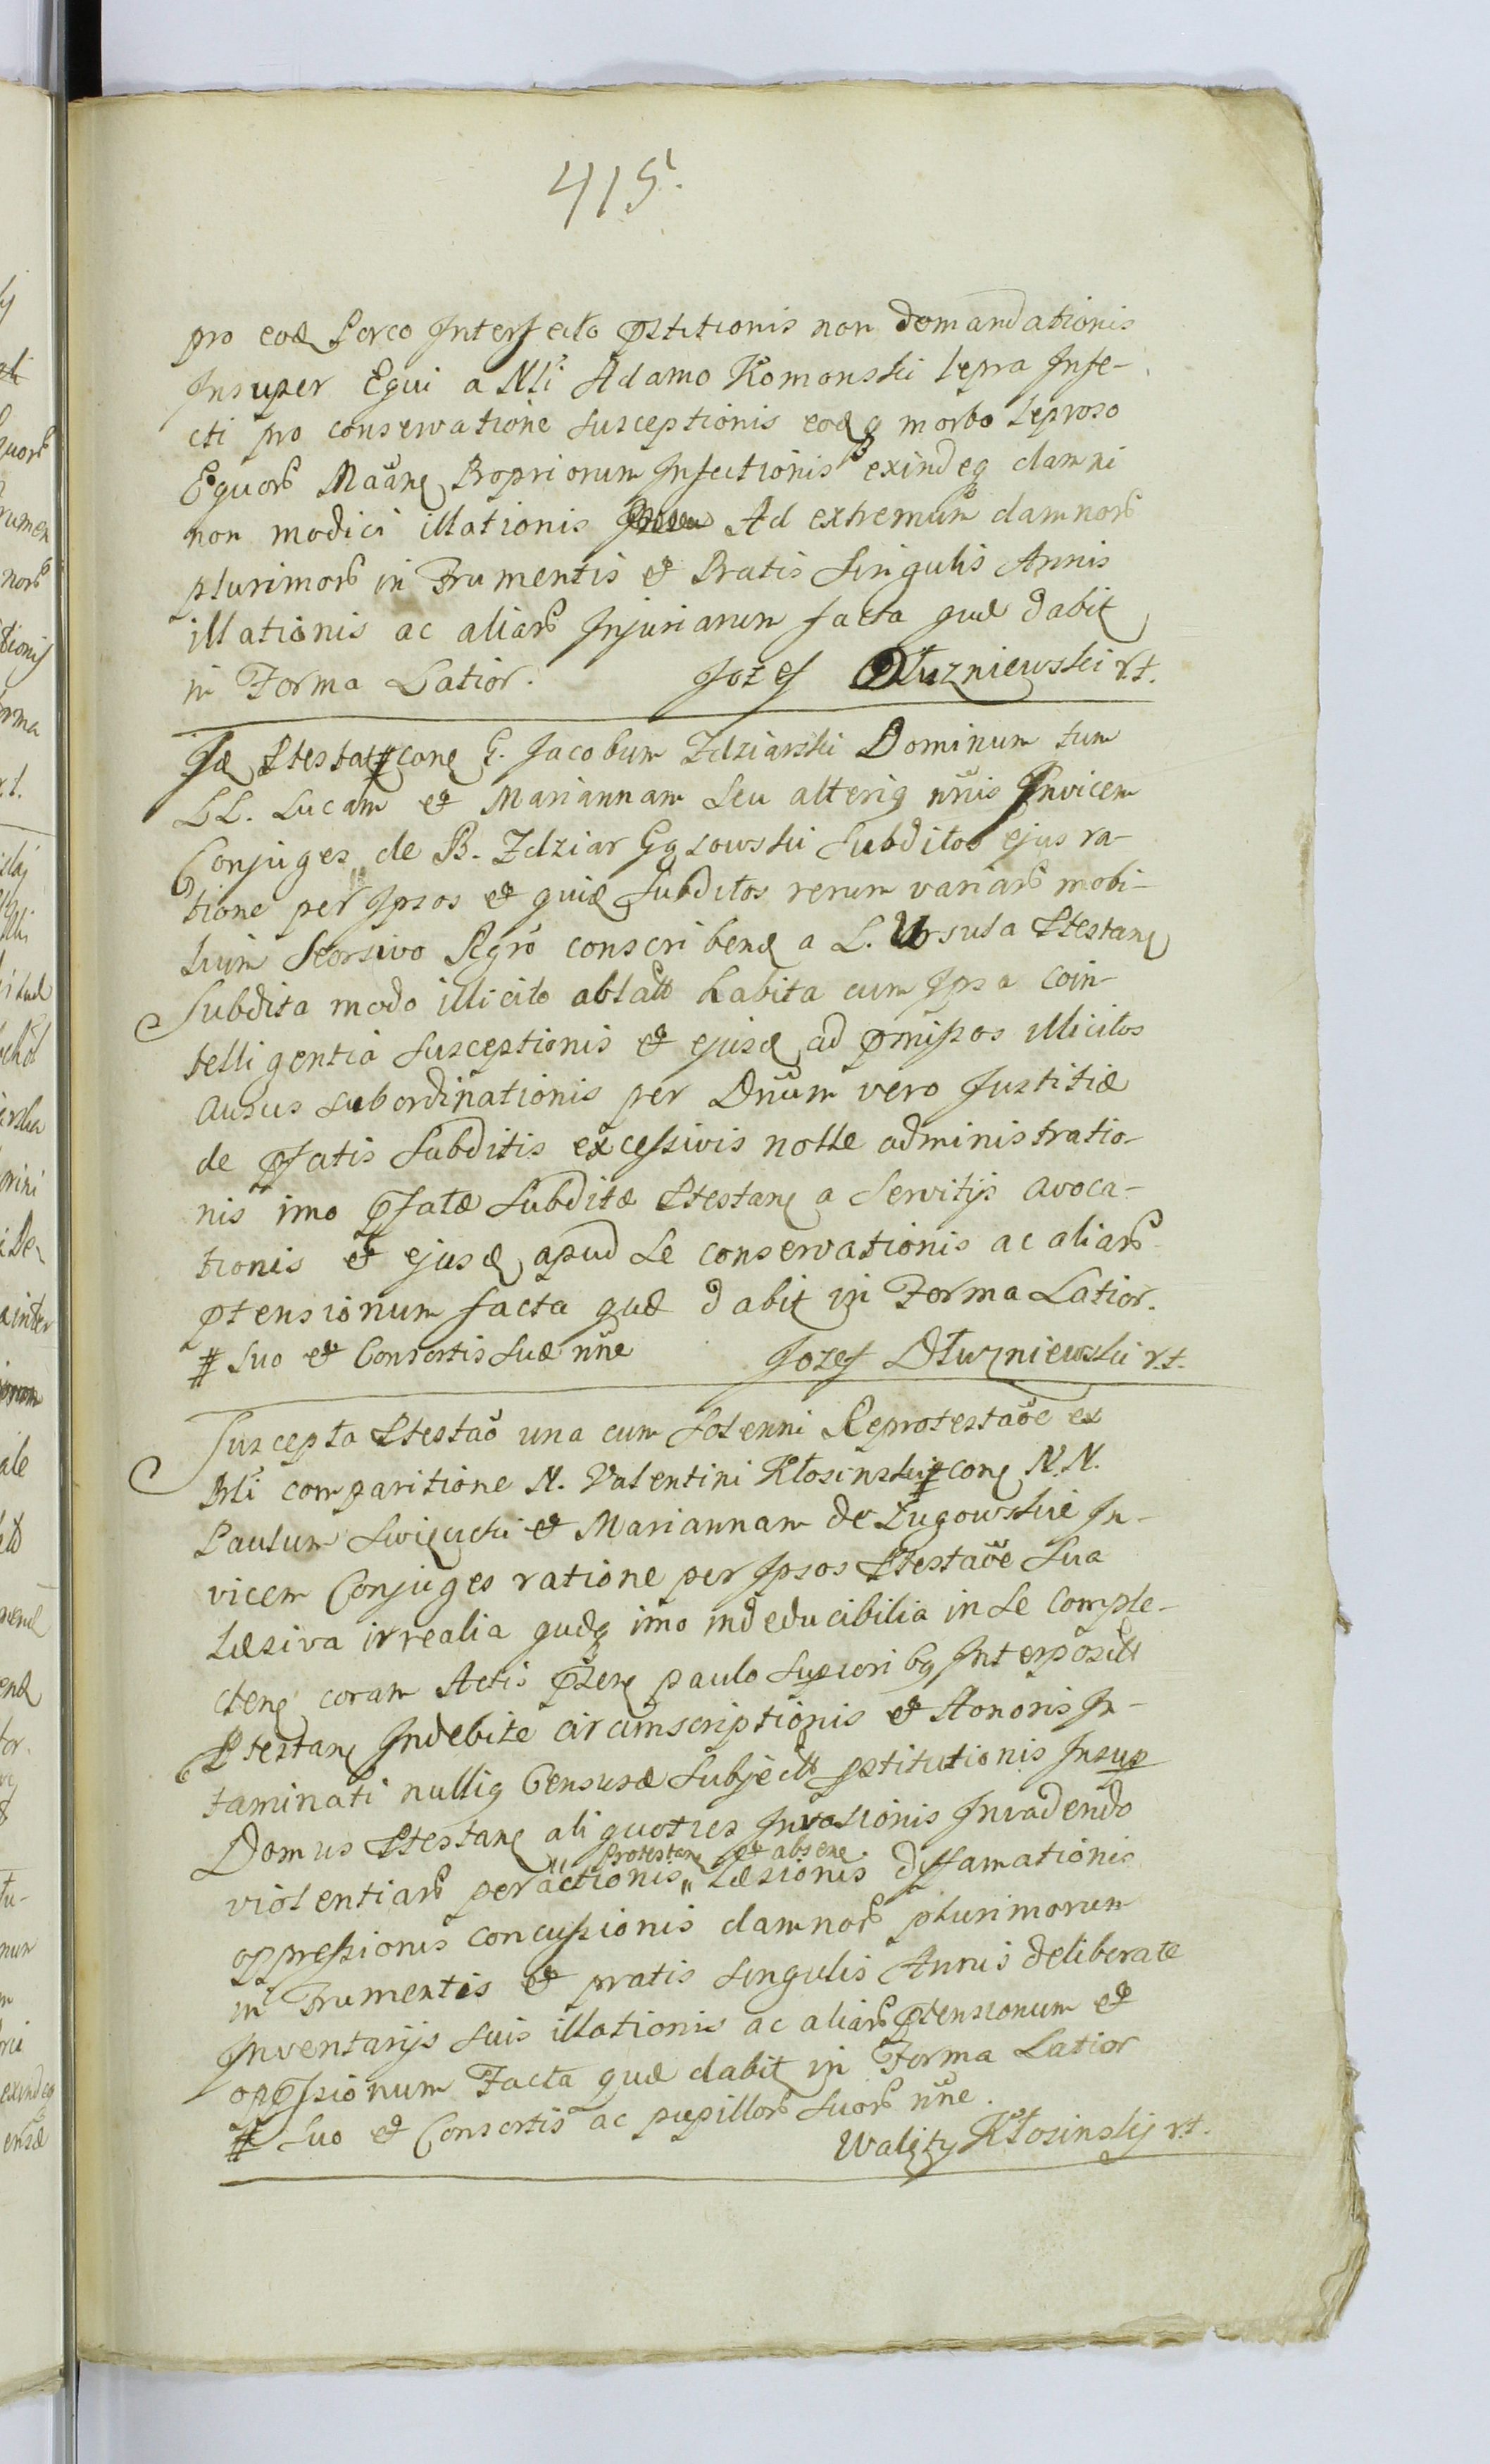 415.
pro eod Porco Interfecto pstitionis non demandationis
Insuper Equi a Nli Adamo Komonski lepra Infe-
cti pro conservatione susceptionis eodq morbo leproso
Equor Maane Propriorum Infectionis exindeq damni
non modici illationis Ad extremum damnor
plurimor in Frumentis et Pratis Singulis Annis
illationis ac aliar Injuriarum facta quæ dabit
in Forma Latior. Jozef Dłuzniewski rt.
Id Ptestat # cone G. Jacobum Zdziarski Dominum tum
LL. Lucam et Mariannam seu alteriq nnis Invicem
Conjuges de B. Zdziar Gąsowski Subditos ejus ra-
tione per Ipsos et quid Subditos rerum variar mobi-
lium Seorsivo Rgro conscribend a L. Ursula Ptestane
Subdita modo illicito ablatt habita cum Ipsa coin-
telligentia susceptionis et ejusd ad pmissos illicitos
ausus subordinationis per Dnum vero Justitiæ
de pfatis Subditis excessivis nolle administratio-
nis imo pfatæ Subditæ Ptestane a Servitijs avoca-
tionis et ejusd apud se conservationis ac aliar
ptensionum facta quæ dabit in Forma Latior.
# suo et Consortis suæ nne Jozef Dłuzniewski rt.
Suscepta Ptestao una cum Solenni Reprotestaoe ex
Prli comparitione N. Valentini Kłosinski # cone N.N.
Paulum Swięcicki et Mariannam de Ługowskie In-
vicem Conjuges ratione per Ipsos Ptestaoe sua
læsiva irrealia quæq imo indeducibilia in se comple-
ctene coram Actis psene paulo superiori bq Interpositt
Ptestane Indebite circumscriptionis et Honoris In-
taminati nulliq Censuræ Subjectt pstitutionis Insup
Domus Ptestane aliquoties Invasionis Invadendo
Protestane et absene
violentiar peractionis „ Læsionis diffamationis
oppressionis concussionis damnor plurimorum
in Frumentis et pratis singulis Annis deliberate
Inventarijs suis illationis ac aliar ptensionum et
oppssionum Facta quæ dabit in Forma Latior
# Suo et Consortis ac pupillor suor nne.
Walęty Kłosinsky rt.